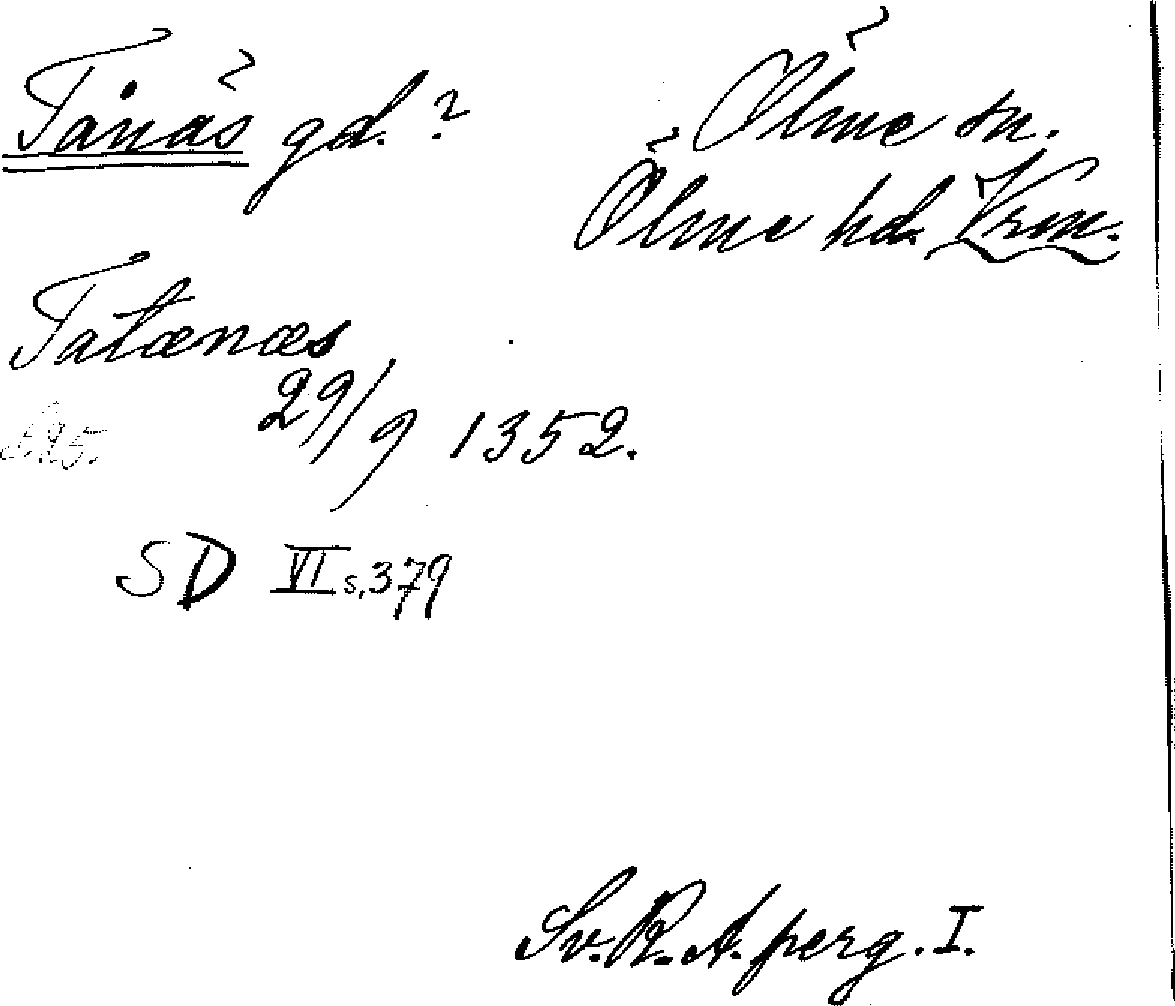 Tånäs gd.?
Ölme sn.
Ölme hd. Vrm.
Tatænæs
29/9 1352.
SD VI s. 379
Sv. R. A. perg. I.